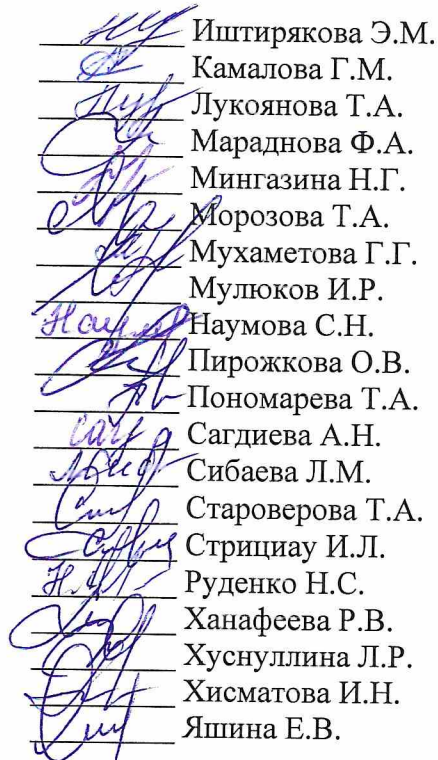 Иштирякова Э.М.
Камалова Г.М.
Лукоянова Т.А.
Мараднова Ф.А.
Мингазина Н.Г.
Морозова Т.А.
Мухаметова Г.Г.
Мулюков И.Р.
Наумова С.Н.
Пирожкова О.В.
Пономарева Т.А.
Сагдиева А.Н.
Сибаева Л.М.
Староверова Т.А.
Стрициау И.Л.
Руденко Н.С.
Ханафеева Р.В.
Хуснуллина Л.Р.
Хисматова И.Н.
Яшина Е.В.